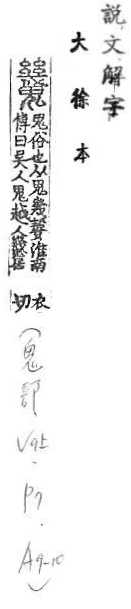 說文解字
大徐本
䰇 鬼俗也从鬼幾聲淮南
傳曰吳人鬼越人䰇居
衣
切
(鬼部, V9上. P7. A9-10)